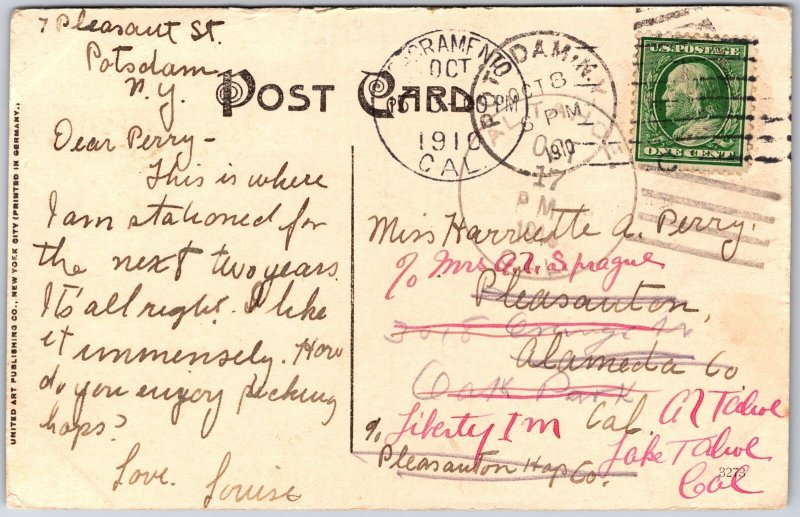 7 Pleasant St.
Potsdam
N.Y.
Dear Perry-
This is where
I am stationed for
the next two years.
It's all right. I like
it immensely. How
do you enjoy picking
hops?
Love.
Louise
POST CARD
SACRAMENTO
OCT
PM
1910
CAL.
POTSDAM, N.Y.
OCT 8
6 PM
1910
17
PM
U.S. POSTAGE
ONE CENT
Miss Harriette A. Perry.
℅ Mrs A.L. Sprague
Pleasanton,
Orange
Alameda Co
Oak Park
Cal.
Liberty Inn
Al Tahoe
Lake Tahoe
Cal
℅ Pleasanton Hop Co.
3273
UNITED ART PUBLISHING CO., NEW YORK CITY (PRINTED IN GERMANY.)